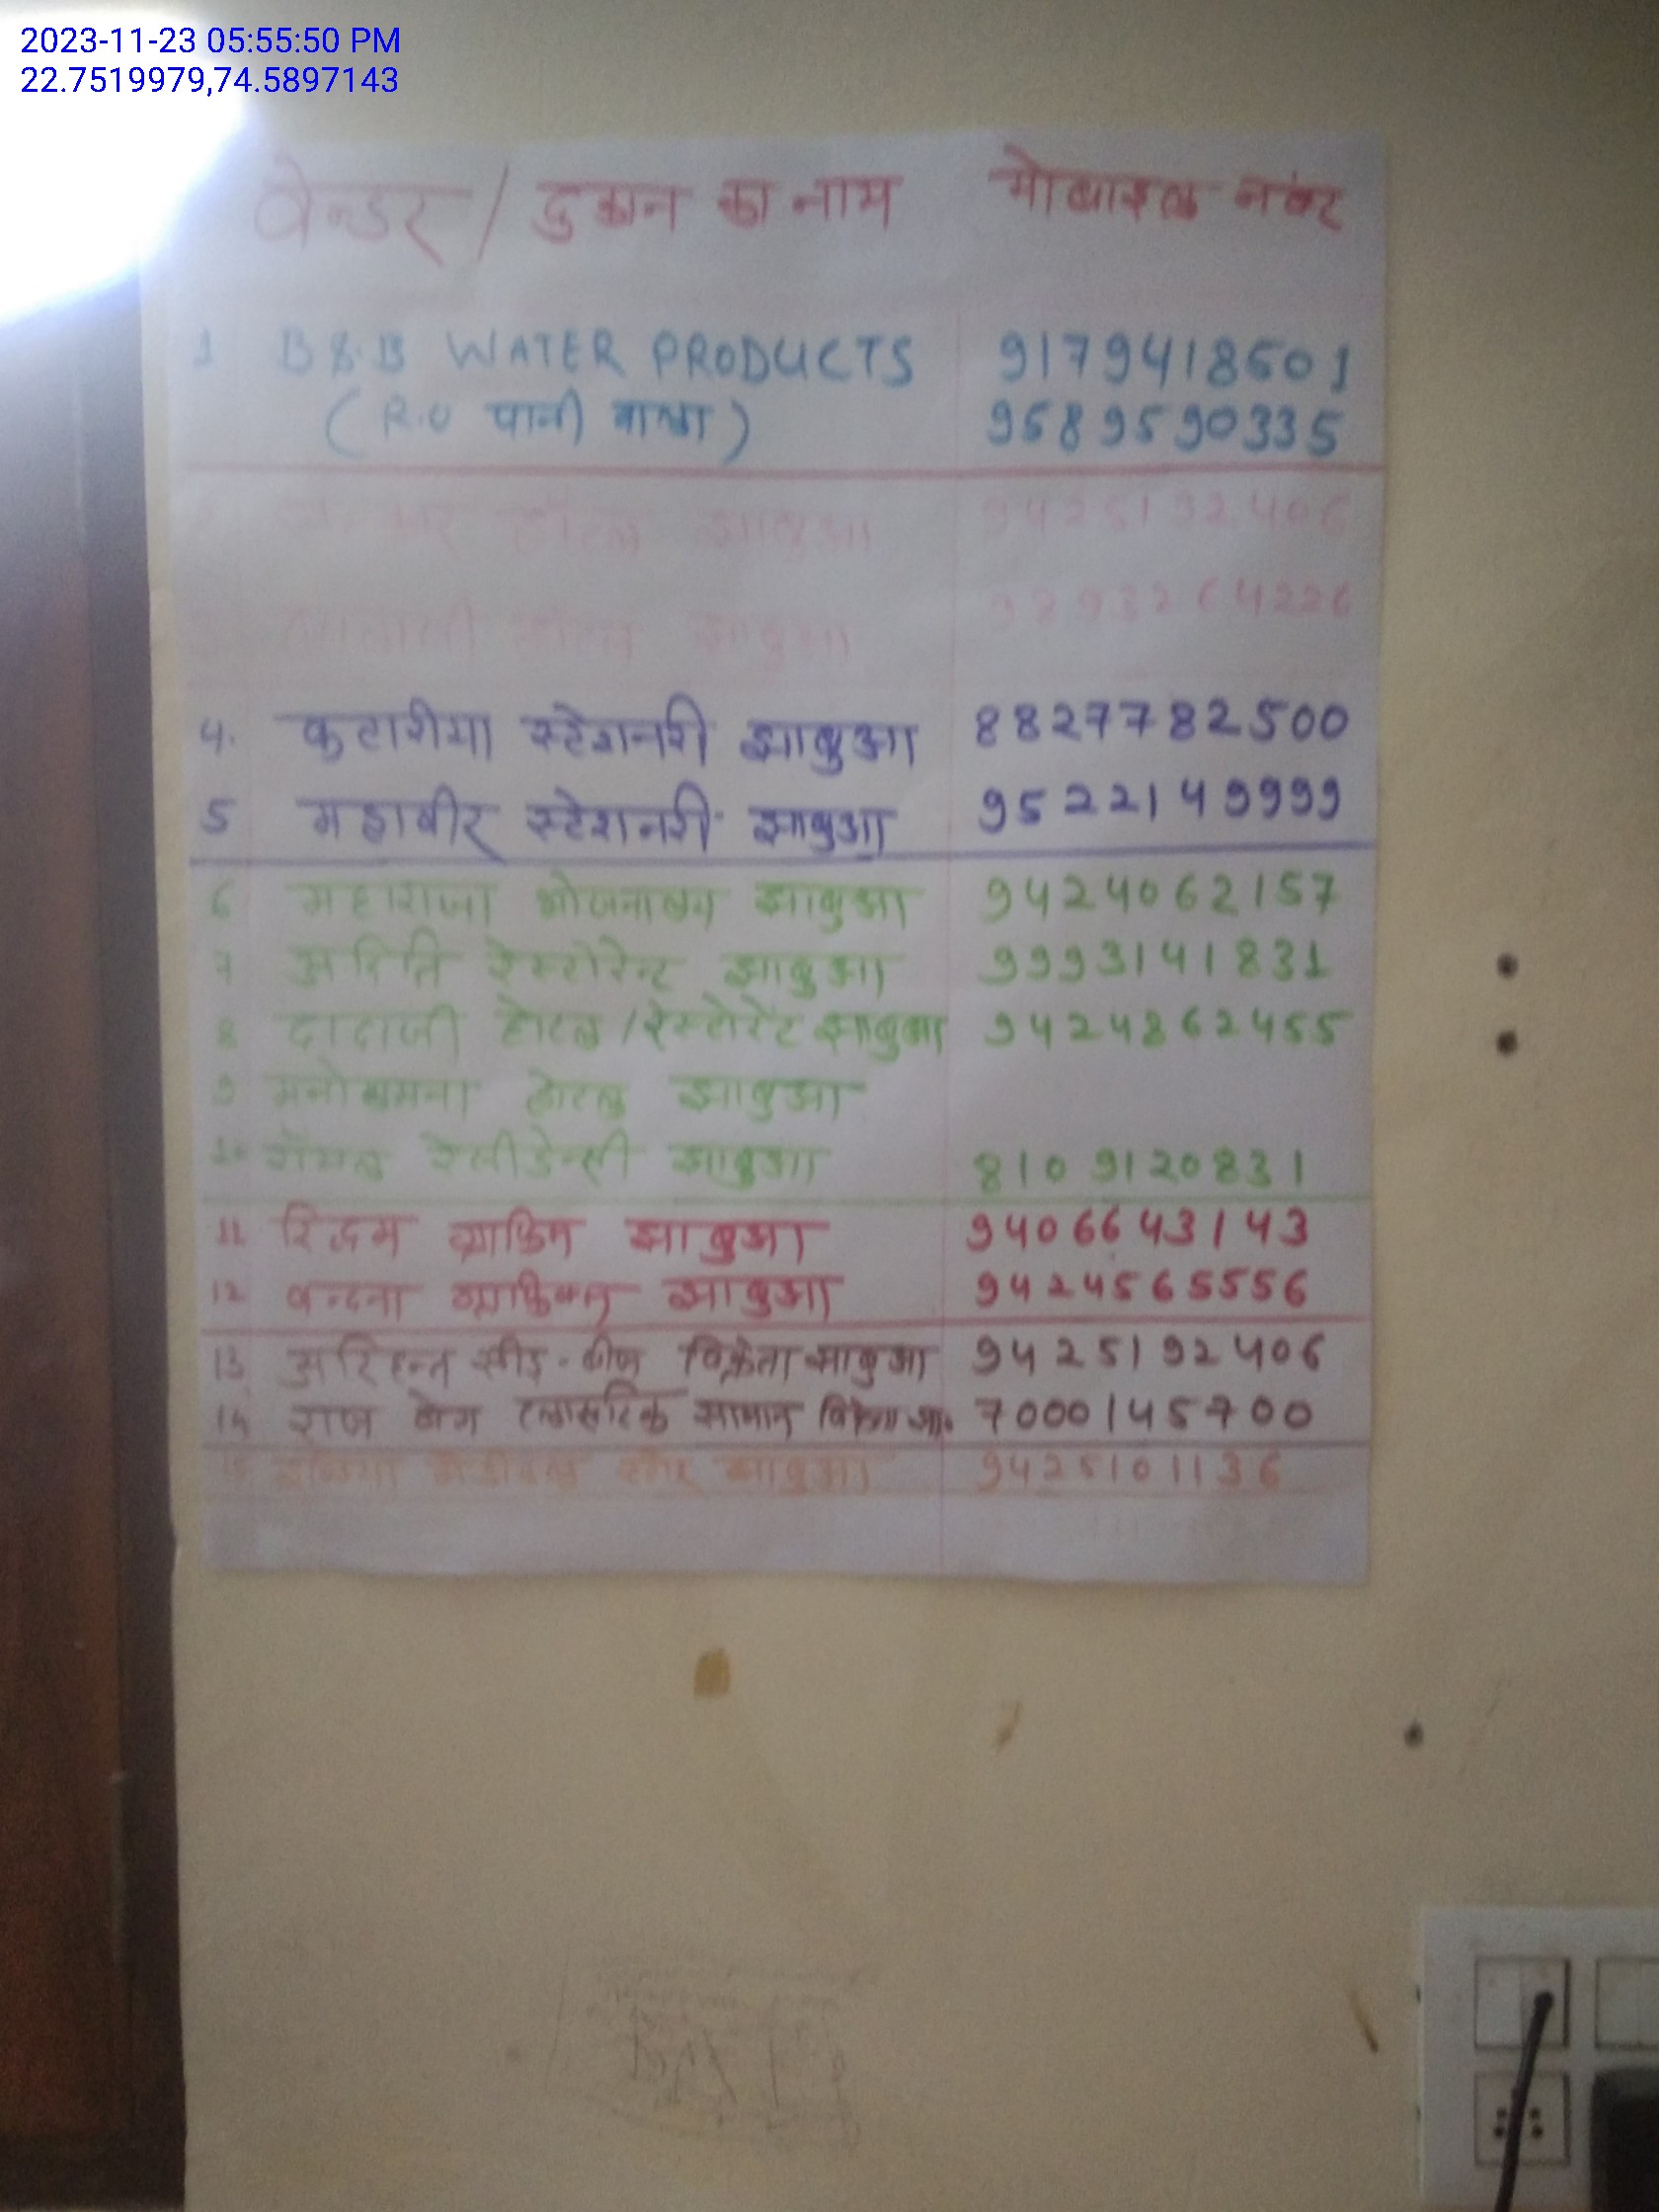 2023-11-23 05:55:50 PM
22.7519979,74.5897143
वेन्डर / दुकान का नाम मोबाइल नंबर
1 B & B WATER PRODUCTS 9179418601
(R.O पानी वाला) 9589590335
होटल झाबुआ 9425192406
होटल झाबुआ 9893264226
4. कटारीया स्टेशनरी झाबुआ 8827782500
5 महावीर स्टेशनरी झाबुआ 9522149999
6 महाराजा भोजनालय झाबुआ 9424062157
7 अदिति रेस्टोरेन्ट झाबुआ 9993141831
8 दादाजी होटल / रेस्टोरेंट झाबुआ 9424862455
9 मनोकामना होटल झाबुआ
10 रॉयल रेसीडेन्सी झाबुआ 8109120831
11 रिद्धम ग्राफिक्स झाबुआ 9406643143
12 वन्दना ग्राफिक्स झाबुआ 9424565556
13 अरिहन्त सीड - बीज विक्रेता झाबुआ 9425192406
14 राज बेग प्लास्टिक सामान विक्रेता झा. 7000145700
15 मेडीकल स्टोर झाबुआ 9425101136